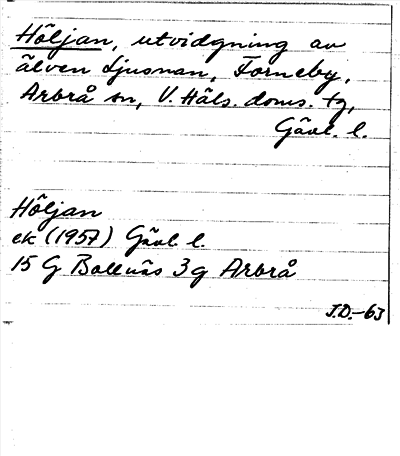 Höljan, utvidgning av
älven Ljusnan, Forneby,
Arbrå sn, V. Häls. doms. tg,
Gävl. l.
Höljan
ek (1957) Gävl. l.
15 G Bollnäs 3g Arbrå
J.D.-63